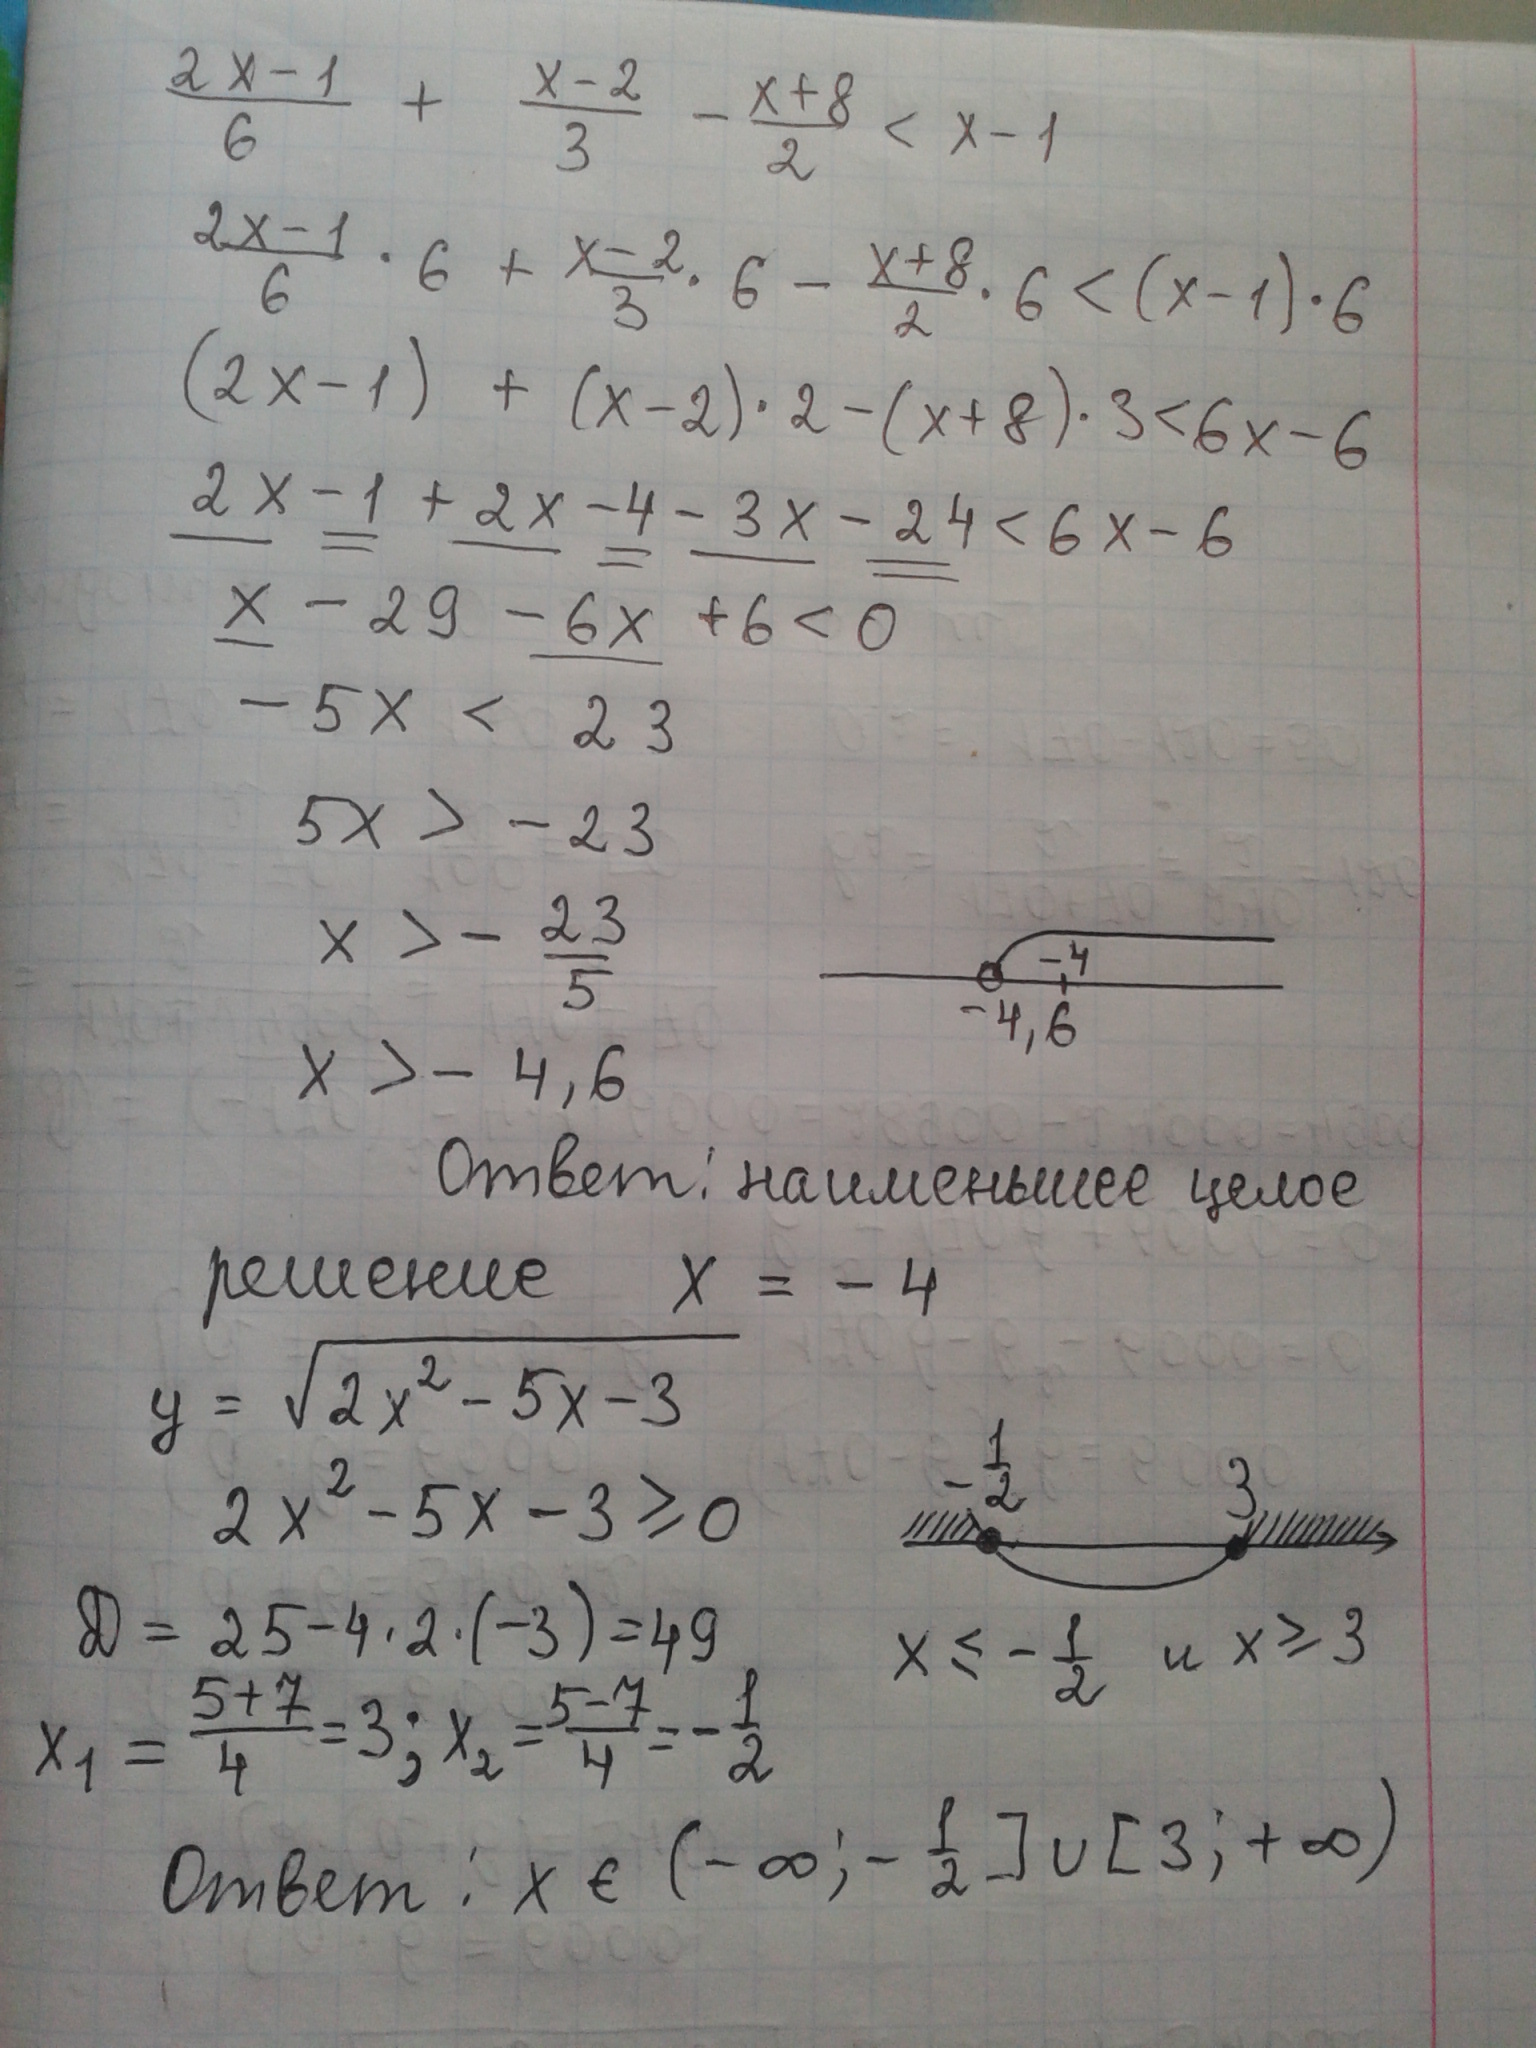 (2x-1)/6 + (x-2)/3 - (x+8)/2 < x-1
(2x-1)/6 · 6 + (x-2)/3 · 6 - (x+8)/2 · 6 < (x-1) · 6
(2x-1) + (x-2)·2-(x+8)·3<6x-6
2x-1+2x-4-3x-24<6x-6
x-29-6x+6<0
-5x < 23
5x > -23
x > - 23/5
-4
-4,6
x > - 4,6
Ответ: наименьшее целое
решение x = -4
y = √(2x²-5x-3)
2x²-5x-3≥0
-1/2 3
Д = 25-4·2·(-3)=49
x ≤ -1/2 и x ≥ 3
x₁ = (5+7)/4 = 3; x₂ = (5-7)/4 = -1/2
Ответ: x ∈ (-∞; -1/2] ∪ [3; +∞)